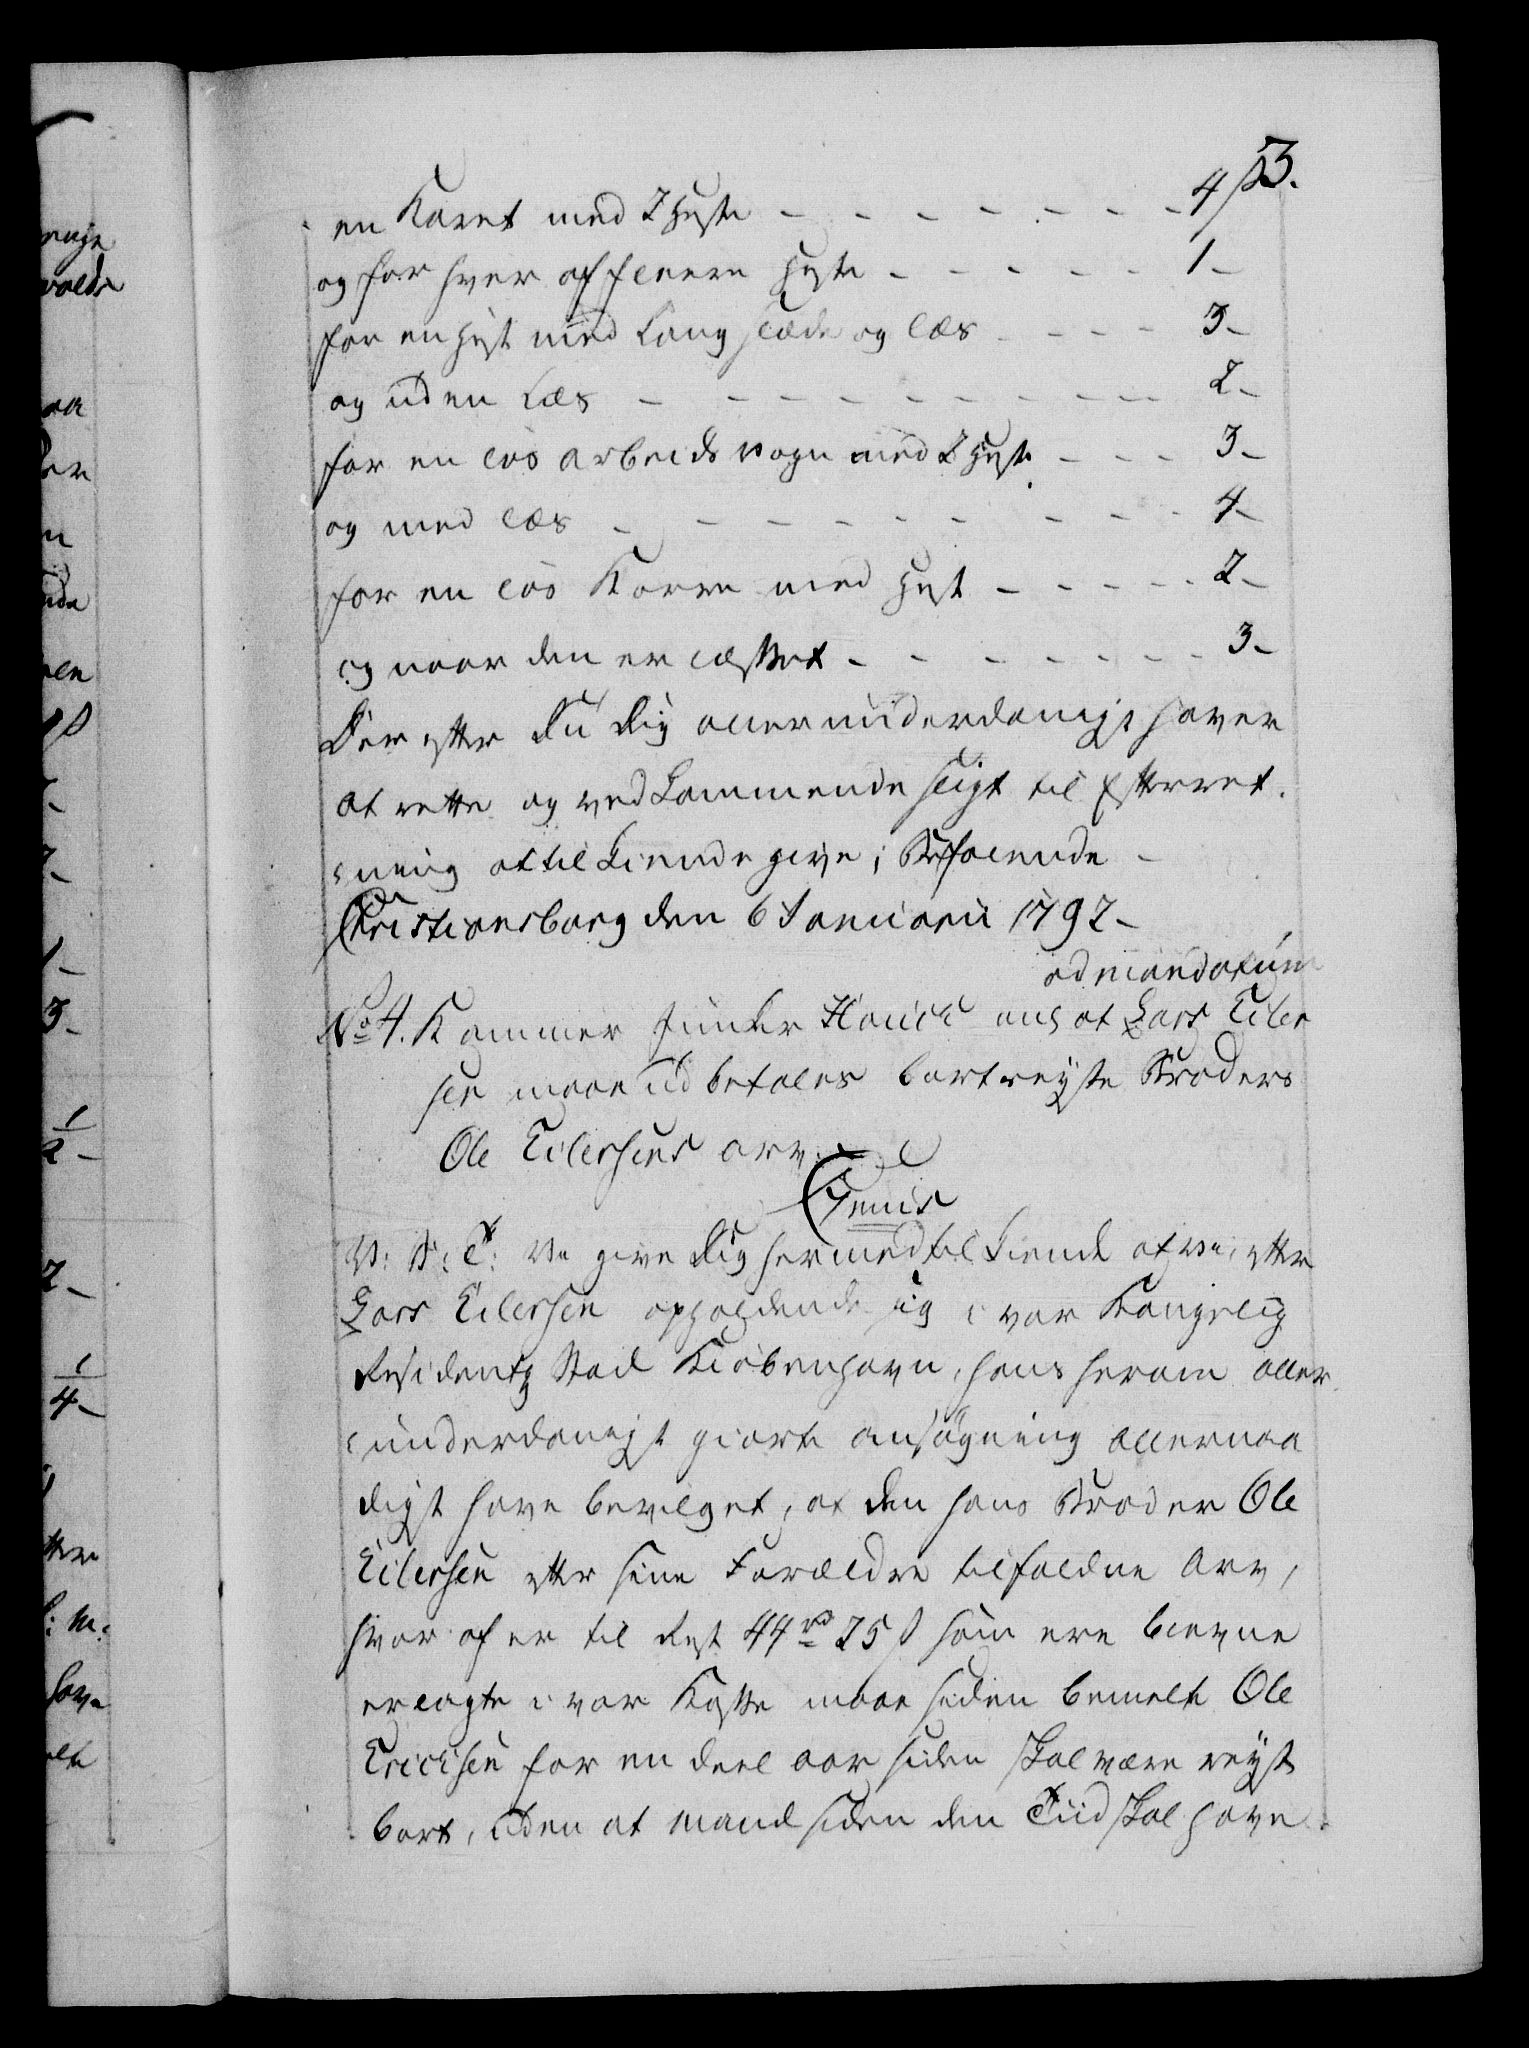 3.
en Karet med 2 Heste - - - - - - - 4 ß
og for hver af fleere Heste - - - - - 1 -
for en Hest med Lang slæde og læs - - - 3 -
og uden Læs - - - - - - - - - 2 -
for en løs arbeids vogn med 2 Heste - - - 3 -
og med læs - - - - - - - - - 4 -
for en løs Karre med Hest - - - - - 2 -
og naar den er læsset - - - - - - - 3 -
Der efter Du Dig allerunderdanigst haver
at rette og vedkommende sligt til Efterret-
ning at til kiende give; Befalende -
Christiansborg den 6 Januarii 1792 -
ad mandatum
No 4. Kammer Junker Hauch ang at Lars Eiler
sen maae udbetales bortreyste Broders
Ole Eilersens arv.
Gemis
V: B: T: Vi give Dig hermed til kiende at vi, efter
Lars Eilersen opholdende sig i vor Kongelig
Residentz Stad Kiøbenhavn, hans herom aller-
underdanigst giorte ansøgning allernaa
digst have bevilget, at den hans Broder Ole
Eilersen efter sine Forældre tilfaldne Arv,
hvor af er til Rest 44 rd 25 ß som ere blevne
erlagte i vor Kasse maae siden bemelte Ole
Erichsen for en deel aar siden skal være reyst
bort, uden at mand siden den Tiid skal have